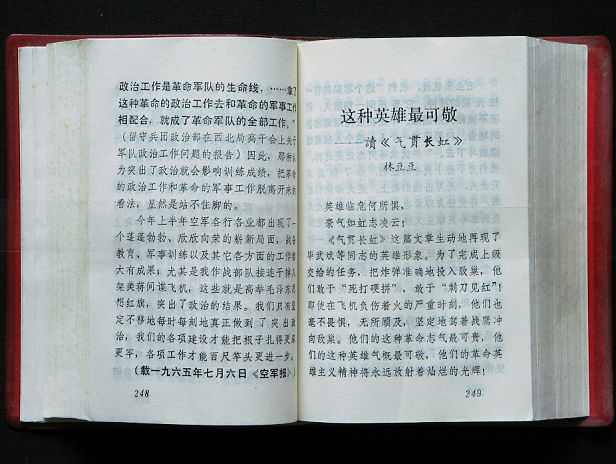 政治工作是革命军队的生命线，……拿了
这种革命的政治工作去和革命的军事工作
相配合，就成了革命军队的全部工作。”
（留守兵团政治部在西北局高干会上关于
军队政治工作问题的报告）因此，那种认
为突出了政治就会影响训练成绩，把革命
的政治工作和革命的军事工作脱离开来的
看法，显然是站不住脚的。
今年上半年空军各行各业都出现了一
个蓬蓬勃勃、欣欣向荣的崭新局面，战备
教育、军事训练以及其它各方面的工作都
大有成果；尤其是我作战部队接连干掉几
架美蒋间谍飞机，这些就是高举毛泽东思
想红旗，突出了政治的结果。我们只有坚
定不移地每时每刻地真正做到了突出政
治，我们的各项建设才能把根子扎得更深
更牢，各项工作才能百尺竿头更进一步。
（载一九六五年七月六日《空军报》）
248
这种英雄最可敬
——读《气贯长虹》
林豆豆
英雄临危何所惧，
豪气如虹志凌云！
《气贯长虹》这篇文章生动地再现了
毕武斌等同志的英雄形象。为了完成上级
交给的任务，把炸弹准确地投入敌巢，他
们敢于“死打硬拼”，敢于“刺刀见红”！
即使在飞机负伤着火的严重时刻，他们也
毫不畏惧，无所顾及，坚定地驾着战鹰冲
向敌巢。他们的这种革命志气最可贵，他
们的这种英雄气概最可敬，他们的革命英
雄主义精神将永远放射着灿烂的光辉！
249